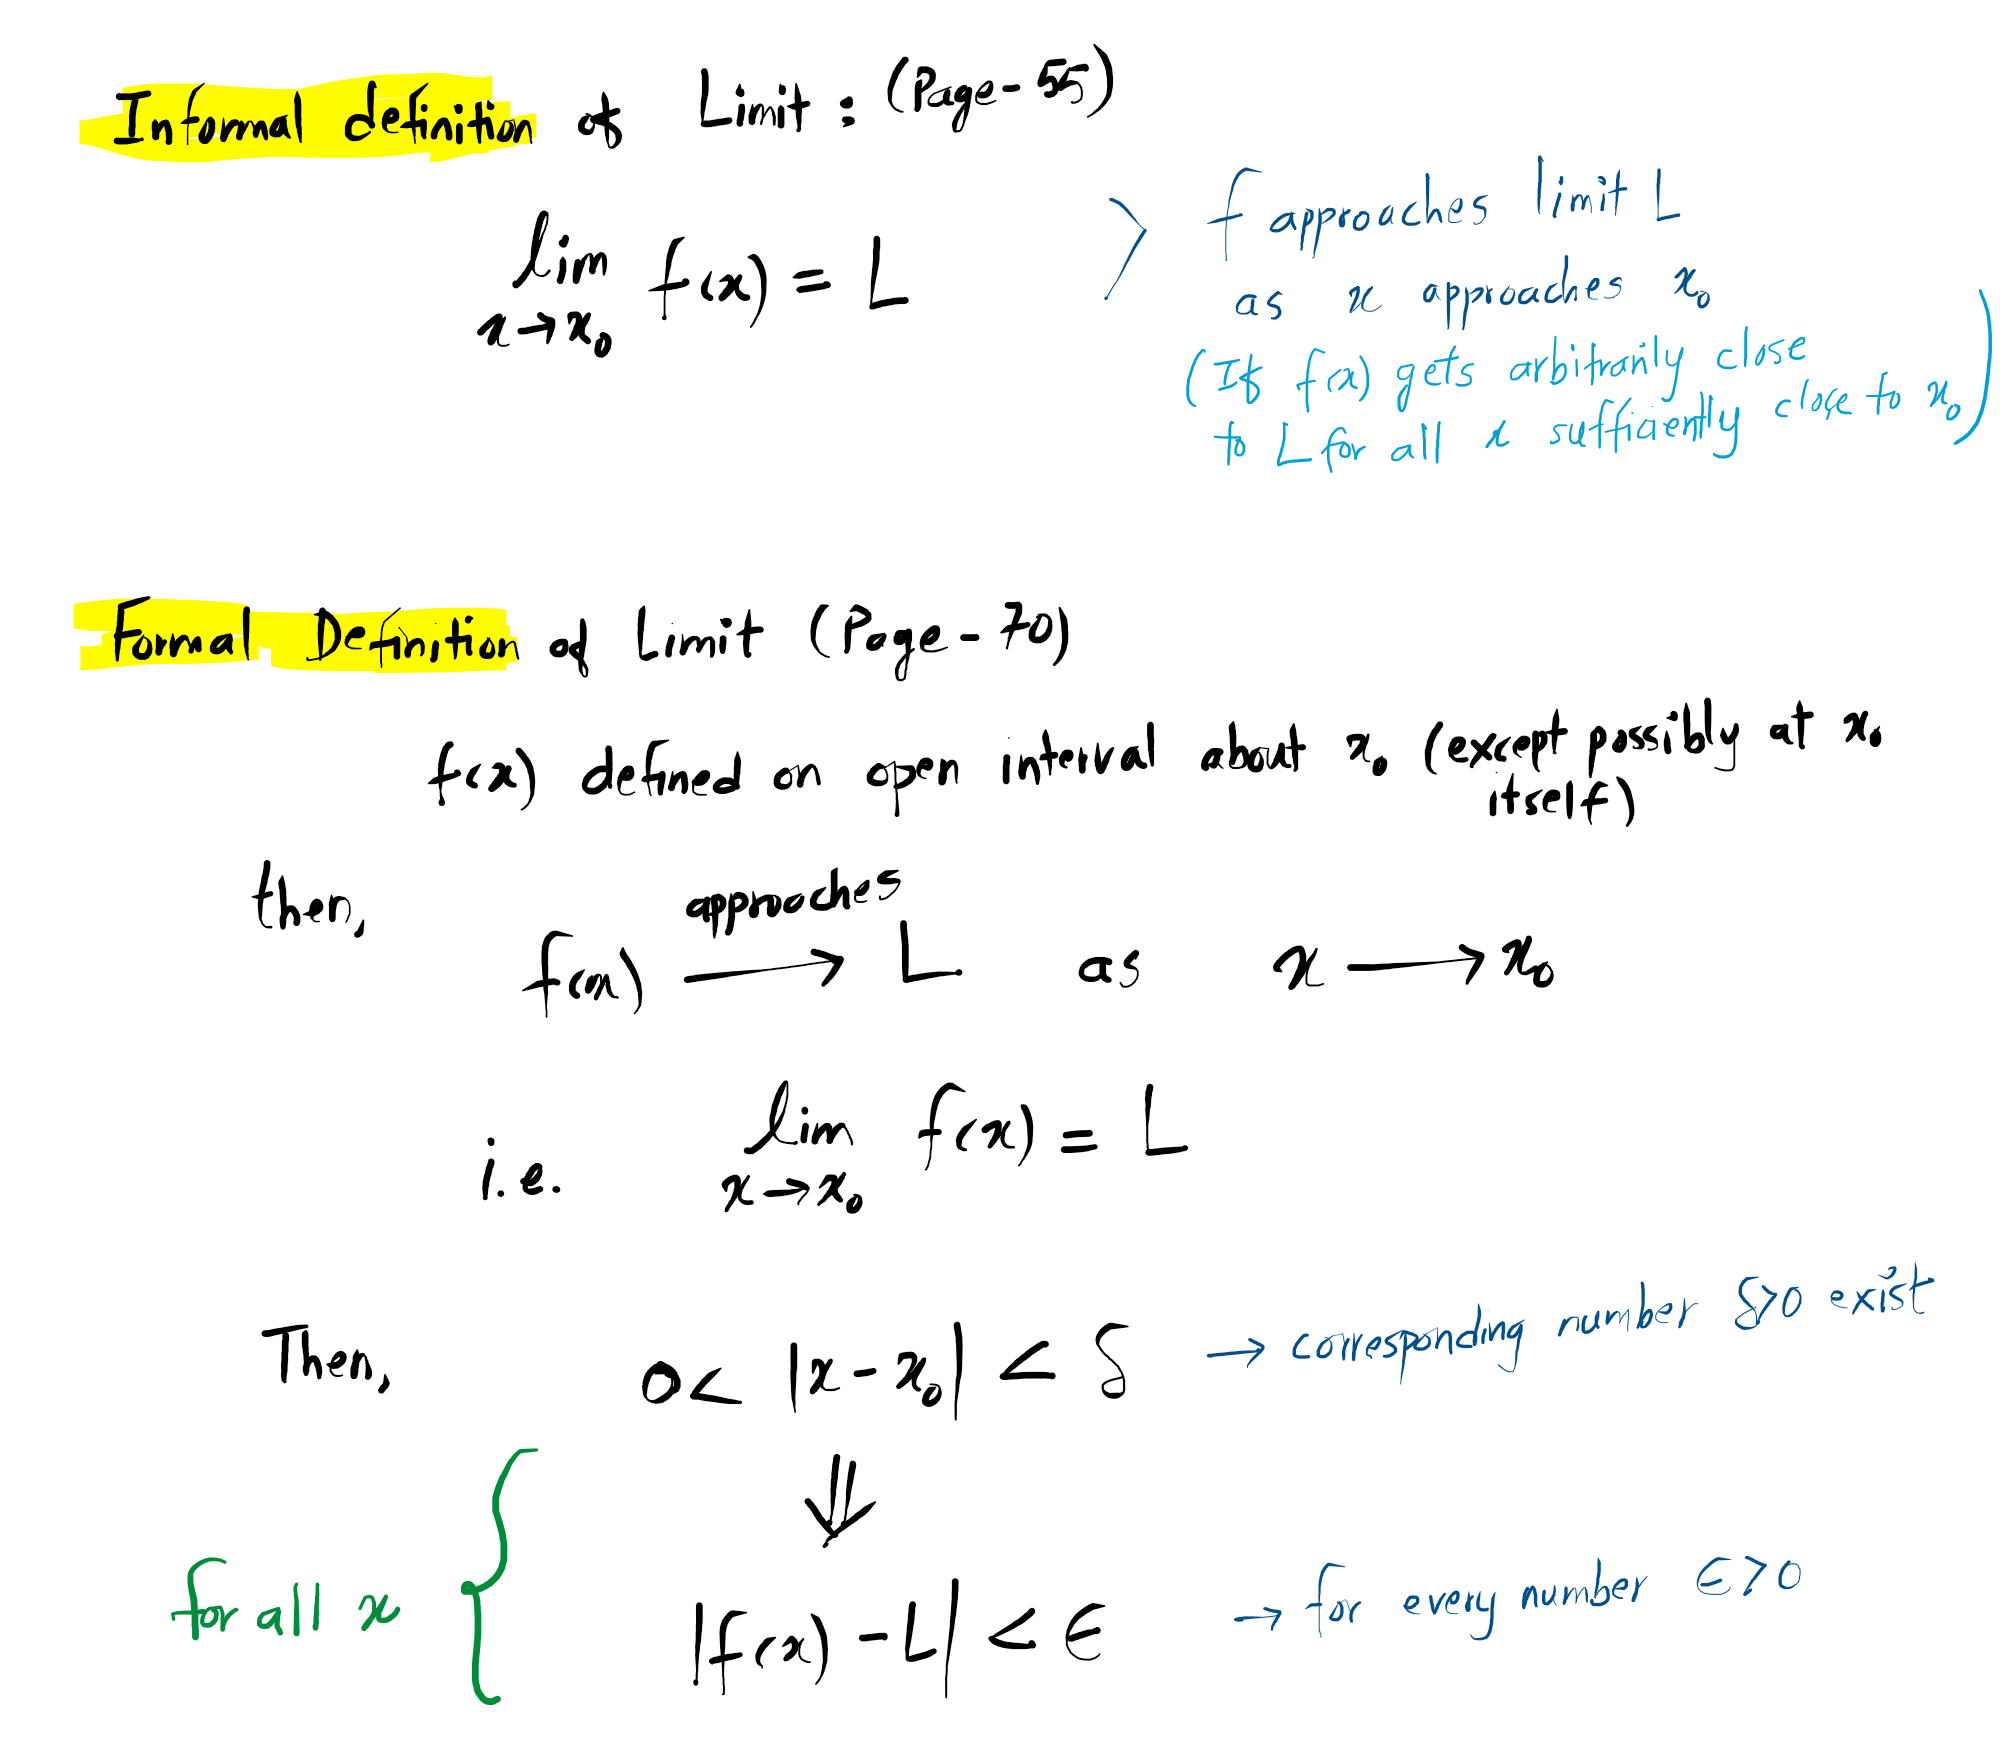 Informal definition of Limit : (Page-55)
lim f(x) = L
x→x₀
> f approaches limit L
as x approaches x₀
(If f(x) gets arbitrarily close
to L for all x sufficiently close to x₀)
Formal Definition of Limit (Page-70)
f(x) defined on open interval about x₀ (except possibly at x₀
itself)
then,
approaches
f(x) ⟶ L as x ⟶ x₀
i.e. lim f(x) = L
x→x₀
Then, 0 < |x - x₀| < δ → corresponding number δ>0 exist
⇓
for all x {
|f(x) - L| < ϵ → for every number ϵ>0